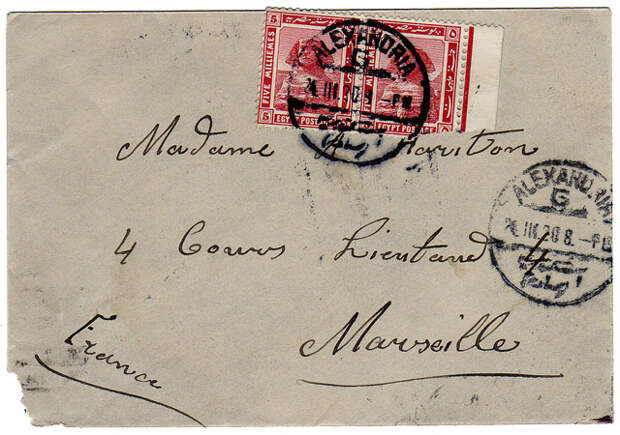 5 ٥ 5 ٥
FIVE MILLIEMES
EGYPT POSTAGE EGYPT POSTAGE
ALEXANDRIA
G
III.20 8.-PM
Madame Hariton
4 Cours Lieutaud 4
Marseille
France
ALEXANDRIA
G
III.20 8.-PM